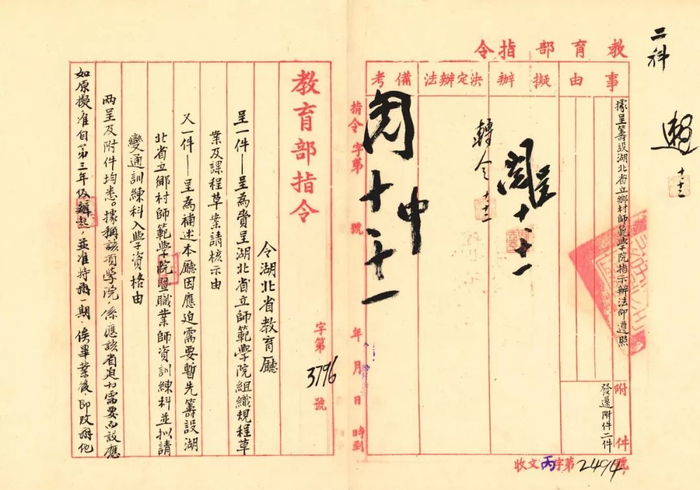 教育部指令
事由
擬辦
決定辦法
備考
據呈籌設湖北省立鄉村師範學院指示辦法仰遵照
附件
發還附件二件
二科
十、十二
轉令
十、十二
十、十一
十、十一
指令 字第 號 年 月 日 時到
收文丙字第2494號
教育部指令
字第3796號
令湖北省教育廳
呈一件——呈為賫呈湖北省立師範學院組織規程草
案及課程草案請核示由
又一件——呈為補述本廳因應迫需要暫先籌設湖
北省立鄉村師範學院暨職業師資訓練科並拟請
變通訓練科入學資格由
兩呈及附件均悉。據稱該項學院,係應該省迫切需要而設應
如原擬准自第三年級辦起,並准持辦一期,俟畢業後,即改辦他